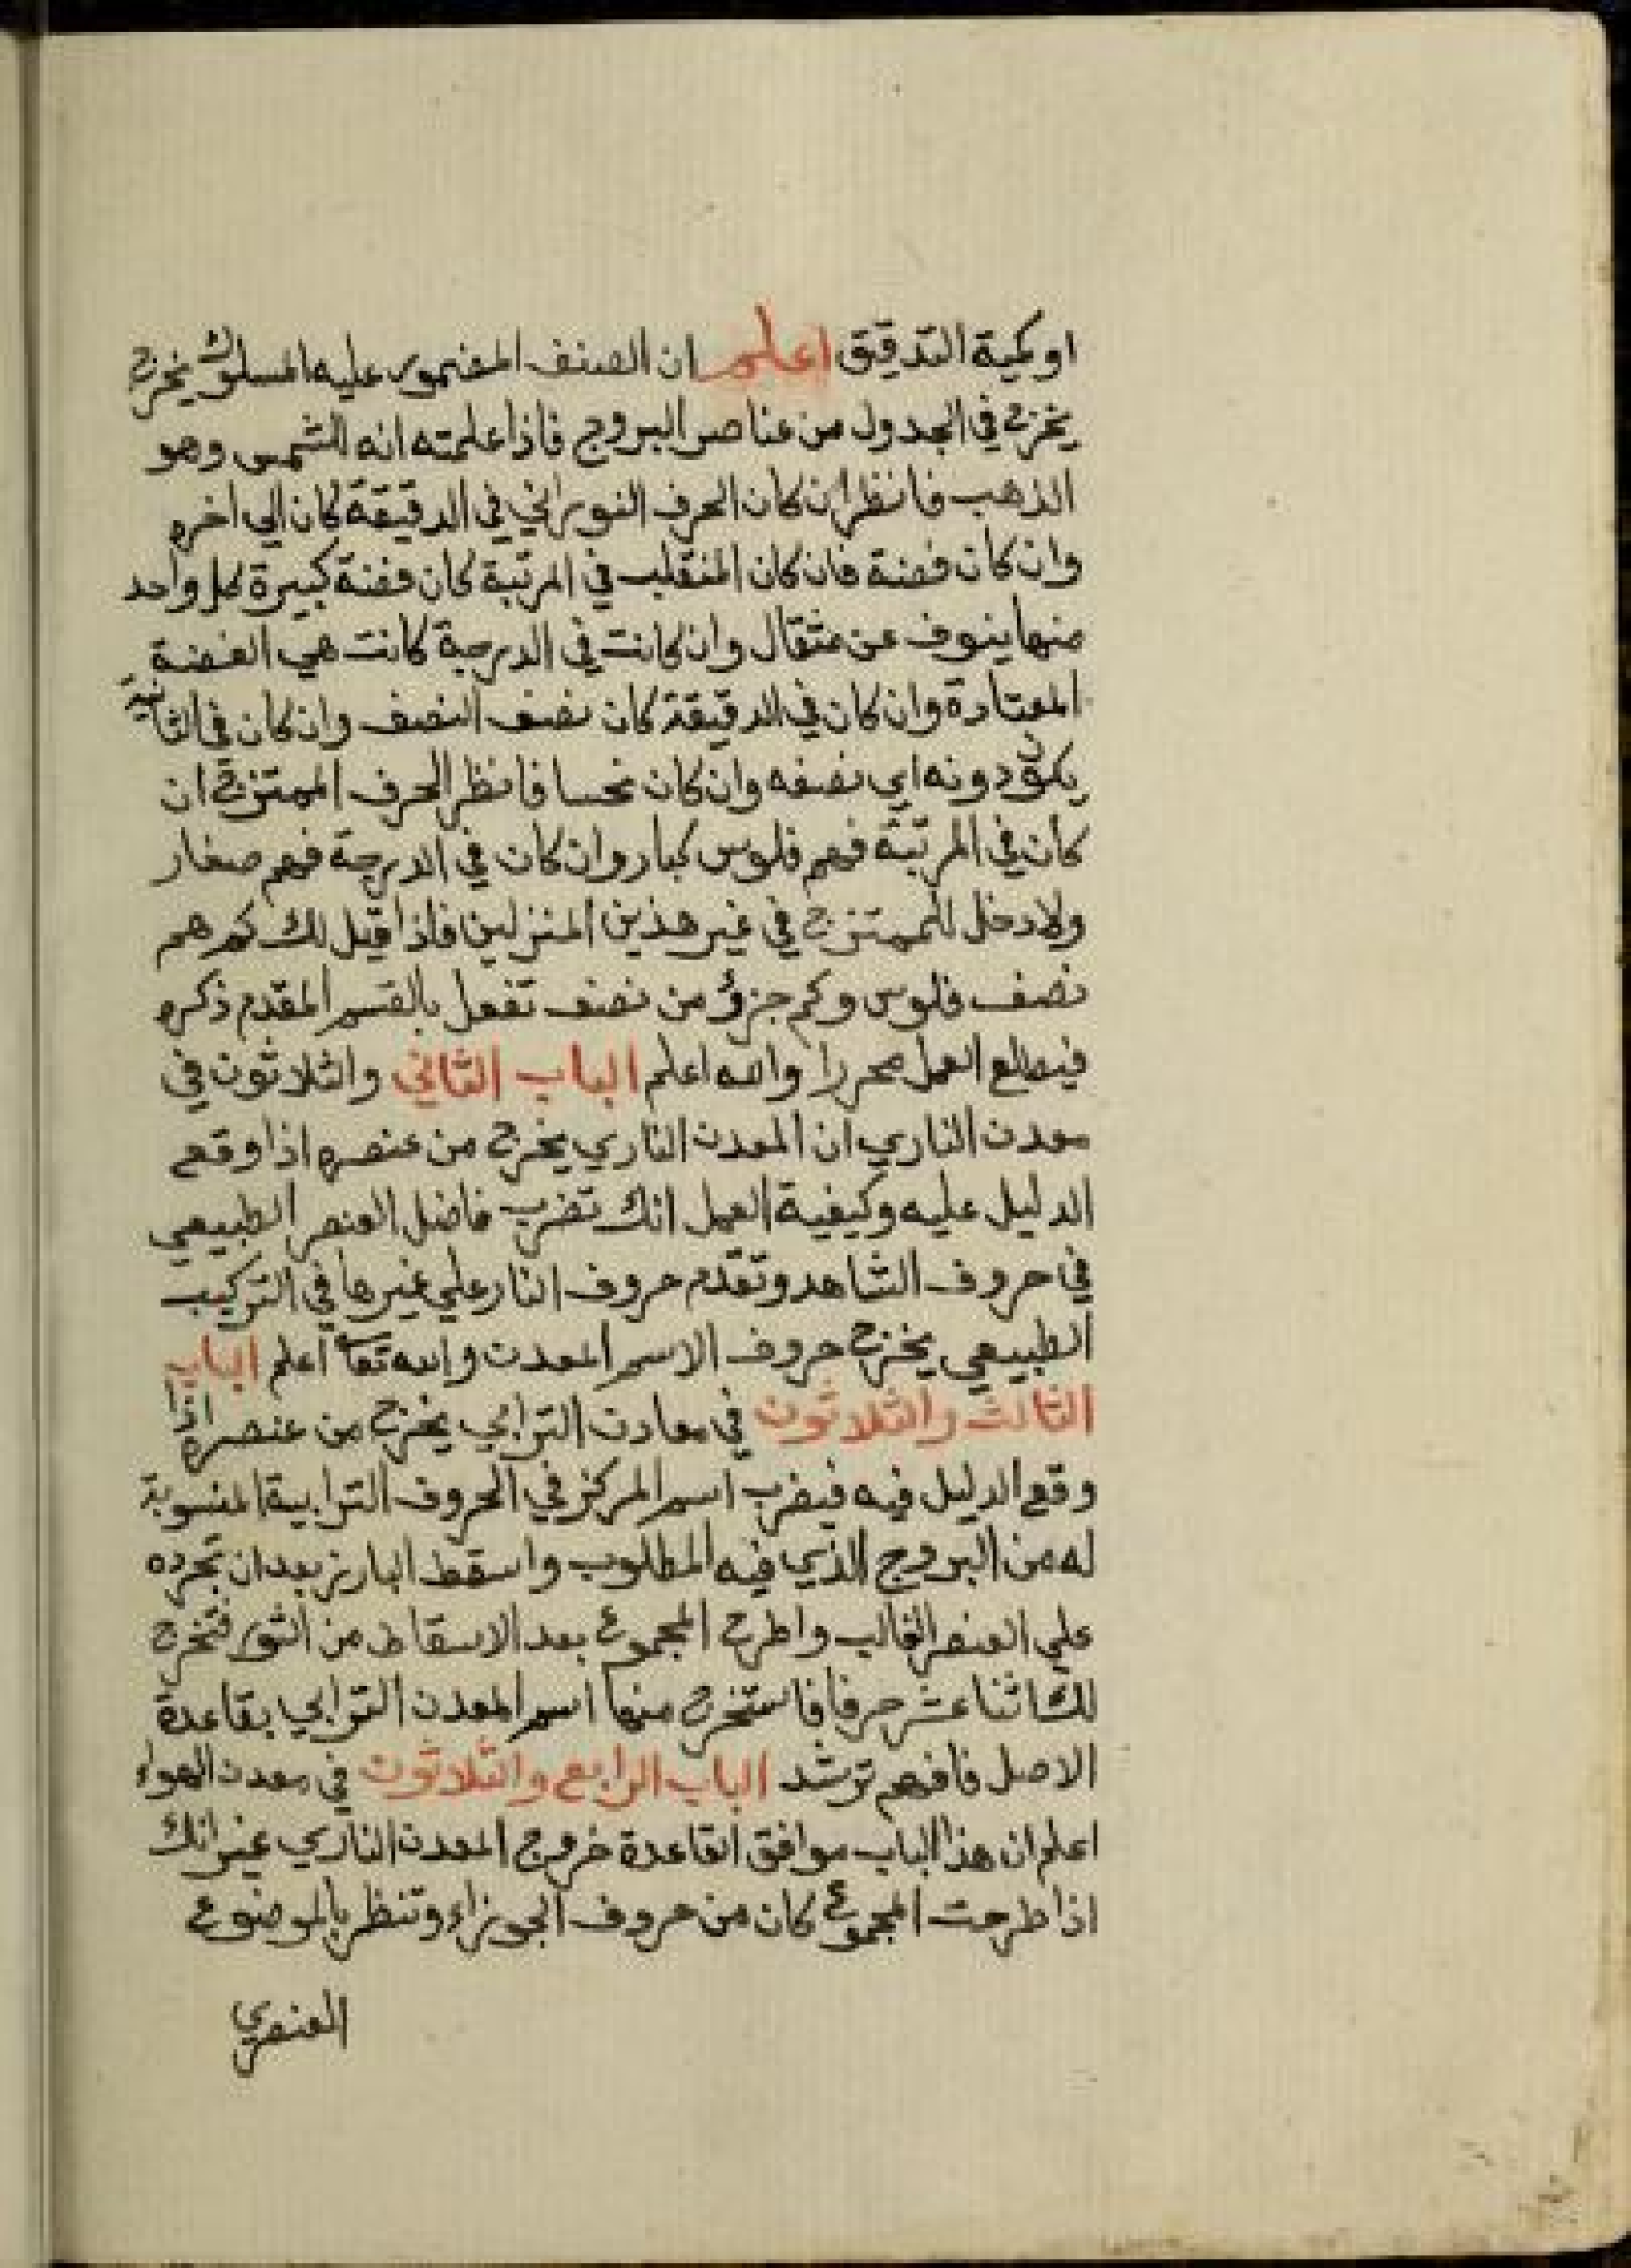 او كمية التدقيق اعلم ان الصنف المضمور عليه المسلوك يخرج
يخرج في الجدول من عناصر البروج فاذا علمته انه للشمس وهو
الذهب فانظر ان كان الحرف النوراني في الدقيقة كان الي اخره
وان كان فضة فان كان المنقلب في المرتبة كان فضة كبيرة كل واحد
منها ينوف عن مثقال وان كانت في الدرجة كانت هي الفضة
المعتادة وان كان في الدقيقة كان نصف النصف وان كان في الثانية
يكون دونه اي نصفه وان كان نحسا فانظر الحرف الممتزج ان
كان في المرتبة فهم فلوس كبار وان كان في الدرجة فهم صغار
ولا دخل للممتزج في غير هذين المنزلين فاذا قيل لك كم هم
نصف فلوس وكم جزؤ من نصف تفعل بالقسم المقدم ذكره
فيطلع العمل محررا والله اعلم الباب الثاني والثلاثون في
معدن الناري ان المعدن الناري يخرج من عنصره اذا وقع
الدليل عليه وكيفية العمل انك تضرب فاضل العنصر الطبيعي
في حروف الشاهد وتقدم حروف النار علي غيرها في التركيب
الطبيعي يخرج حروف الاسم المعدن والله تعا اعلم الباب
الثالث والثلاثون في معادن الترابي يخرج من عنصره اذا
وقع الدليل فيه فيضرب اسم المركز في الحروف الترابية المنسوبة
له من البروج الذي فيه المطلوب واسقط البارز بعد ان تجرده
علي العنصر الغالب واطرح المجموع بعد الاسقاط من الثور فتخرج
لك اثنا عشر حرفا فاستخرج منها اسم المعدن الترابي بقاعدة
الاصل فافهم ترشد الباب الرابع والثلاثون في معدن الهواء
اعلم ان هذا الباب موافق القاعدة خروج المعدن الناري غير انك
اذا طرحت المجموع كان من حروف الجوزاء وتنظر بالموضوع
العنصري